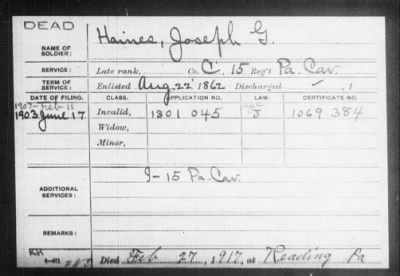 DEAD
NAME OF SOLDIER: Haines, Joseph G.
SERVICE: Late rank, Co. C. 15 Reg't Pa. Cav.
TERM OF SERVICE: Enlisted Aug. 22 1862 Discharged , 1
DATE OF FILING. CLASS. APPLICATION NO. LAW. CERTIFICATE NO.
1907-Feb 11
1903 June 17 Invalid, 1301 045 J 1069 384
Widow,
Minor,
ADDITIONAL SERVICES: I-15 Pa. Cav.
REMARKS:
Died Feb 27, 1917, at Reading Pa